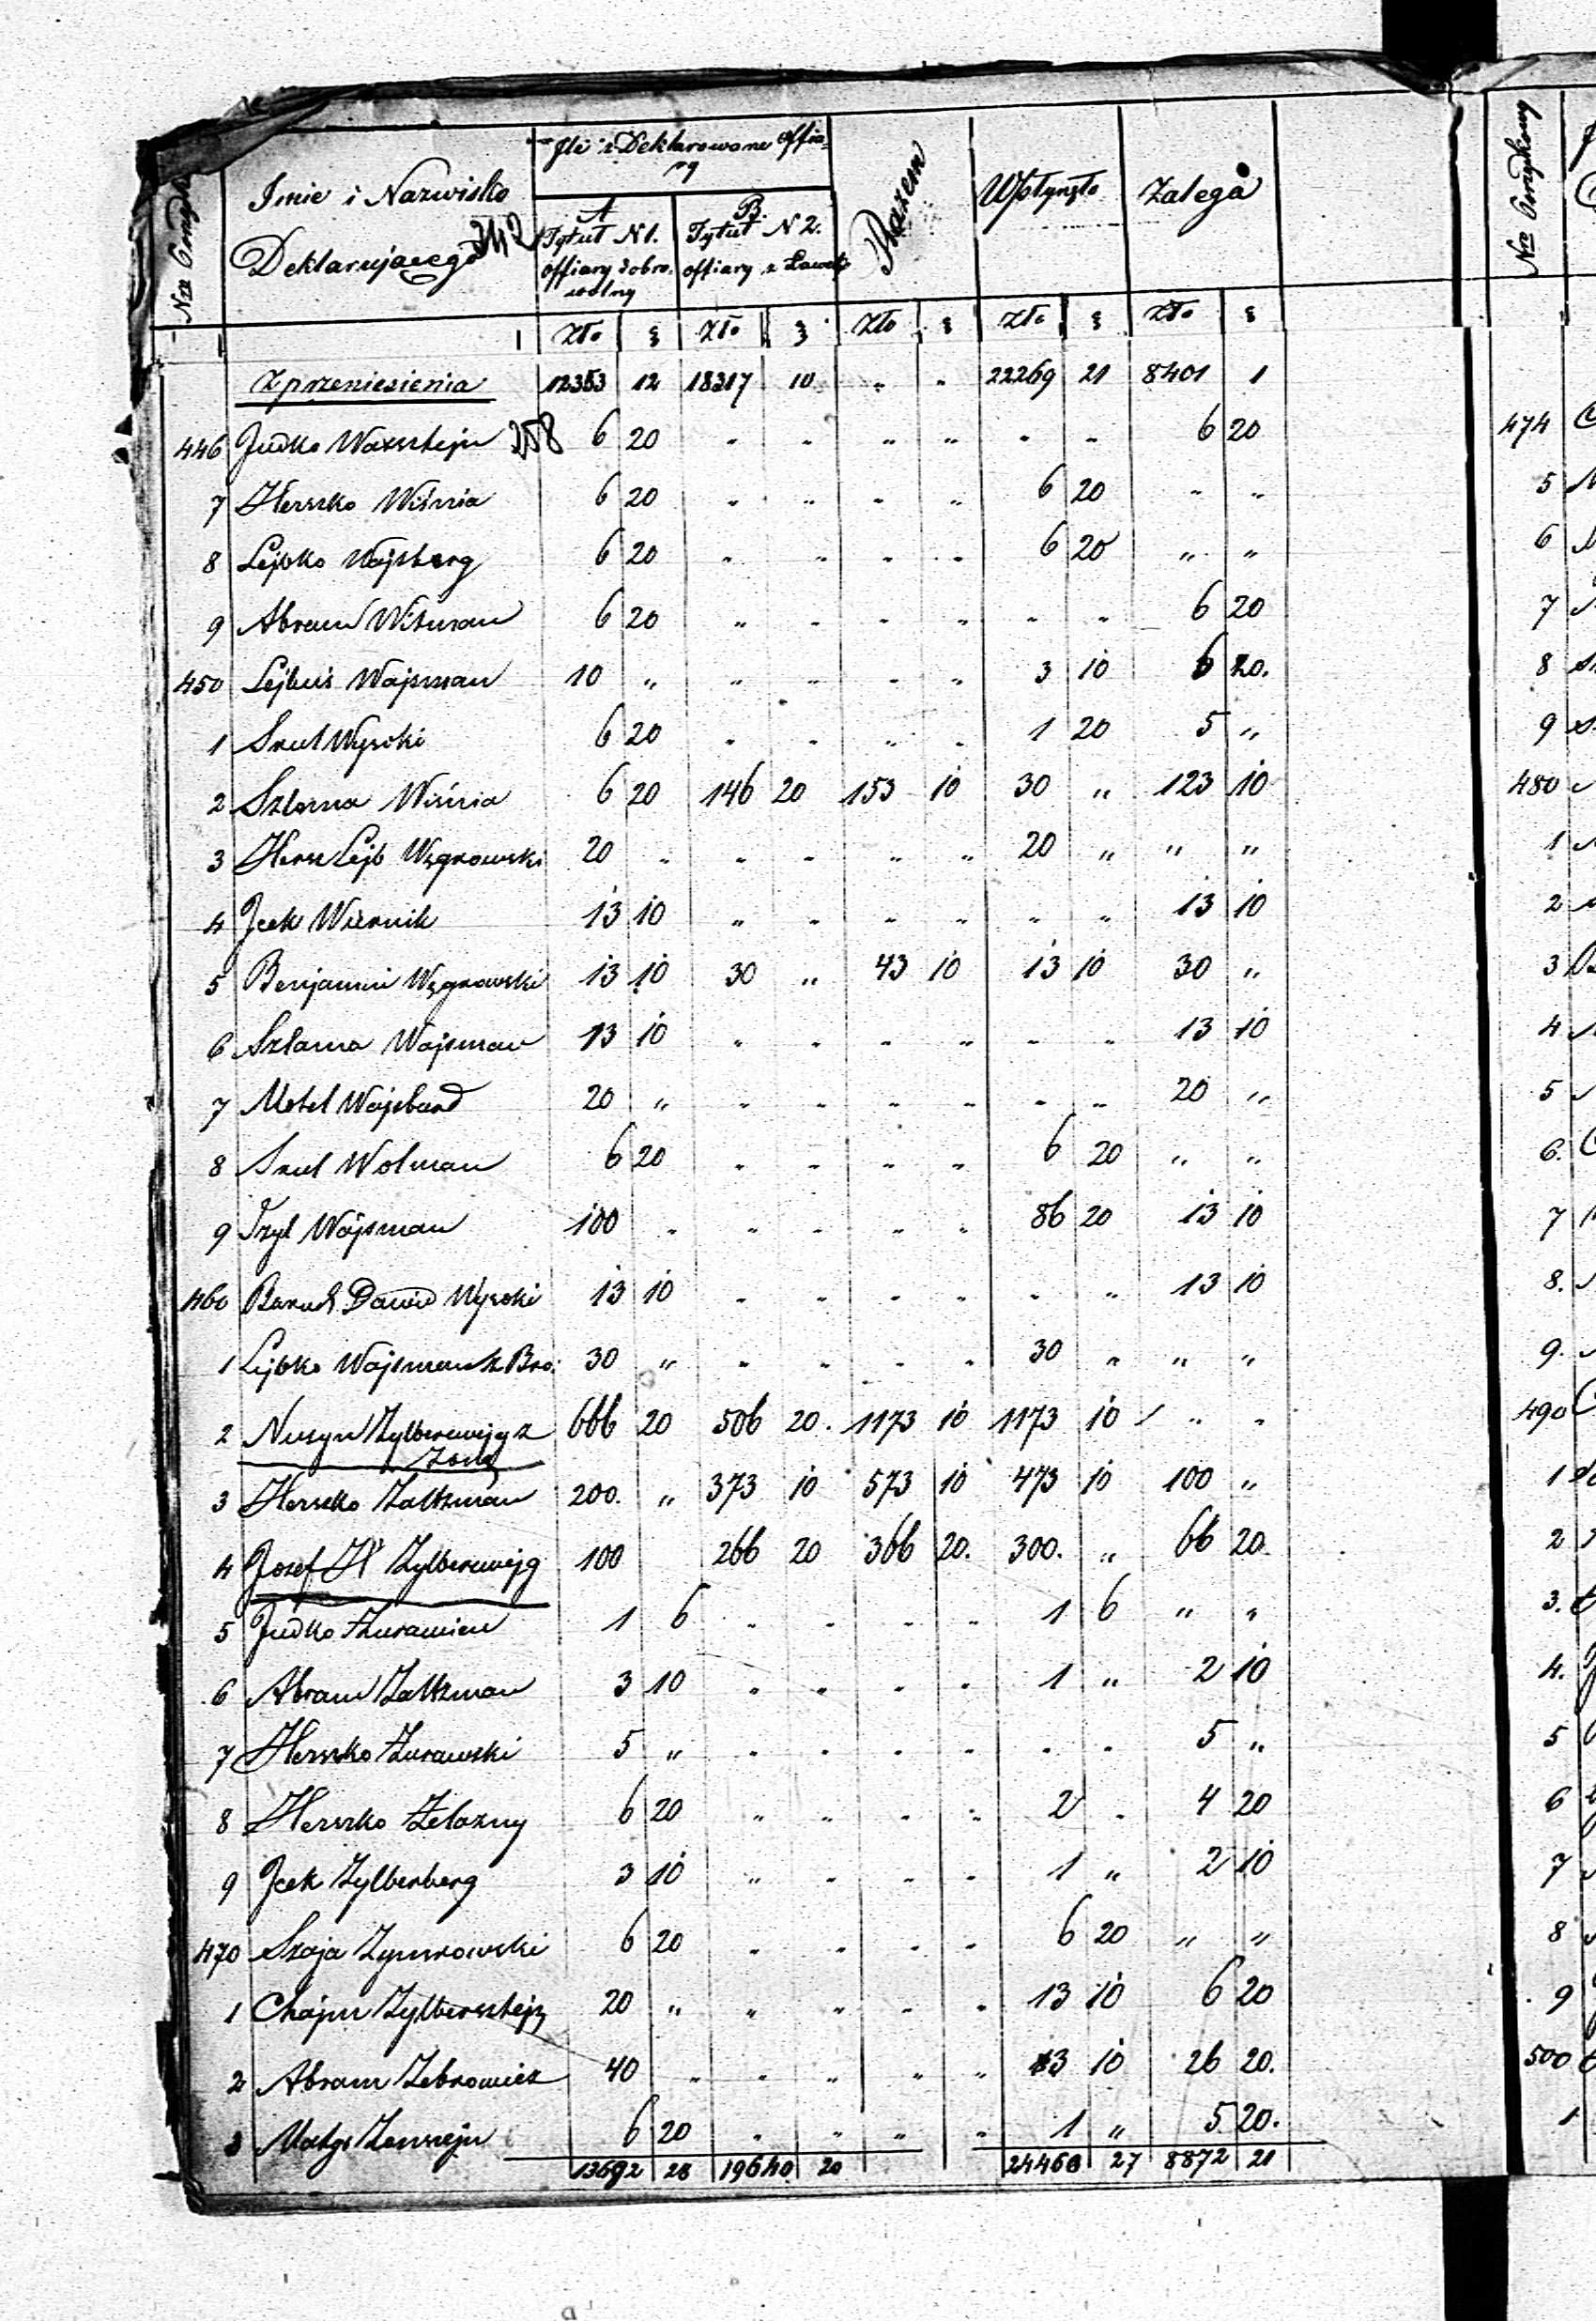 Nro Porządk
Imie i Nazwisko
Deklarującego
Ile zDeklarowane offia-
ry
A
Tytuł N 1.
offiary dobro-
wolny
B.
Tytuł N 2.
offiary z Ławek
Razem
Wpłynęło
Zalega
Złp g Złp g Złp g Złp g Złp g
Z przeniesienia 12353 12 18317 10 „ „ 22269 21 8401 1
446 Judko Warsztejn 258 6 20 „ „ „ „ „ „ 6 20
7 Herszko Wiśnia 6 20 „ „ „ „ 6 20 „ „
8 Lejbko Wajsberg 6 20 „ „ „ „ 6 20 „ „
9 Abram Witman 6 20 „ „ „ „ „ „ 6 20
450 Lejbuś Wajsman 10 „ „ „ „ „ 3 10 6 20.
1 Srul Wysoki 6 20 „ „ „ „ 1 20 5 „
2 Szloma Wiśnia 6 20 146 20 153 10 30 „ 123 10
3 Hersz Lejb Węgrowski 20 „ „ „ „ „ 20 „ „ „
4 Jcek Wiernik 13 10 „ „ „ „ „ „ 13 10
5 Benjamin Węgrowski 13 10 30 „ 43 10 13 10 30 „
6 Szlama Wajsman 13 10 „ „ „ „ „ „ 13 10
7 Motel Wajsband 20 „ „ „ „ „ „ „ 20 „
8 Srul Wolman 6 20 „ „ „ „ 6 20 „ „
9 Jzyl Wajsman 100 „ „ „ „ „ 86 20 13 10
460 Baruch Dawid Wysoki 13 10 „ „ „ „ „ „ 13 10
1 Lejbko Wajsman z Bro: 30 „ „ „ „ „ 30 „ „ „
2 Nusyn Zylbercwejg z 666 20 506 20. 1173 10 1173 10 „ „
Żoną
3 Herszko Zaltzman 200. „ 373 10 573 10 473 10 100 „
4 Josef H Zylbercwejg 100 266 20 366 20. 300. „ 66 20
5 Judko Żurawien 1 6 „ „ „ „ 1 6 „ „
6 Abram Zaltzman 3 10 „ „ „ „ 1 „ 2 10
7 Herszko Żurawski 5 „ „ „ „ „ „ „ 5 „
8 Herszko Żelazny 6 20 „ „ „ „ 2 „ 4 20
9 Jcek Zylberberg 3 10 „ „ „ „ 1 „ 2 10
470 Szaja Zymrowski 6 20 „ „ „ „ 6 20 „ „
1 Chajm Zylbersztejn 20 „ „ „ „ „ 13 10 6 20
2 Abram Zebrowicz 40 „ „ „ „ „ 13 10 26 20.
3 6 20 „ „ „ „ 1 „ 5 20.
13692 28 19640 20 24460 27 8872 21
Nro Porządkowy
474
5
6
7
8
9
480
1
2
3
4
5
6.
7
8.
9.
490
1
2
3.
4.
5
6
7
8
9
500
1